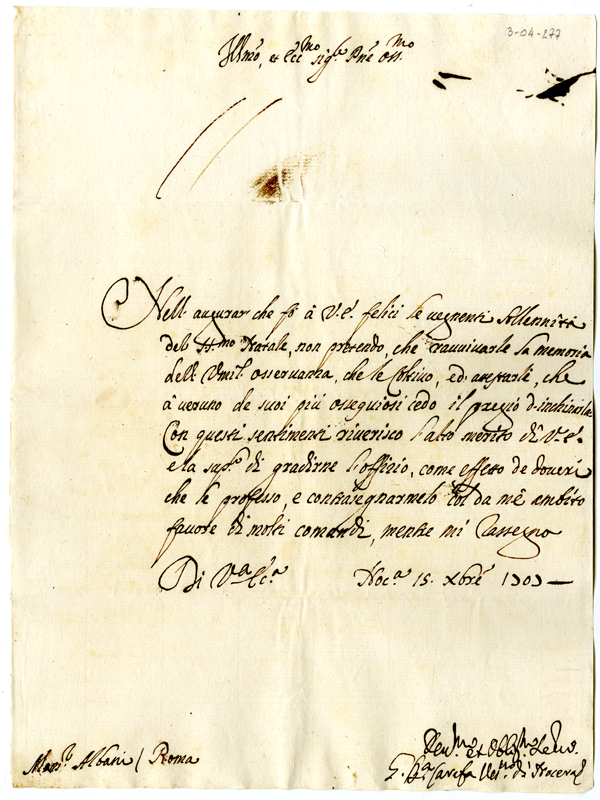 3-04-277
Illmo, et Ecc.mo Sig.r Pne Oss.mo
Nell' augurar che fò à V.E. felici le vegnenti Sollennità
dell SS.mo Natale, non pretendo, che ravvivarle la memoria
dell' Umil.e osservanza, che le, ed attestarle, che
à veruno de suoi più osseguiosi cedo il pregio d'inchinarla
Con questi sentimenti riverisco l'alto merito di V.E.
e la sup.co di gradirne l'offizio, come effetto de doveri
che le professo, e contrasegnarmelo col da mè ambito
favore di molti comandi, mentre mi Rassegno
Di V.a Ecc.a Noc.a 15. Xbre 1703
Dev.mo et Obblig.mo Servo.
Mons.r Albani / Roma
G. Ba. Carafa Ves.vo di Nocera